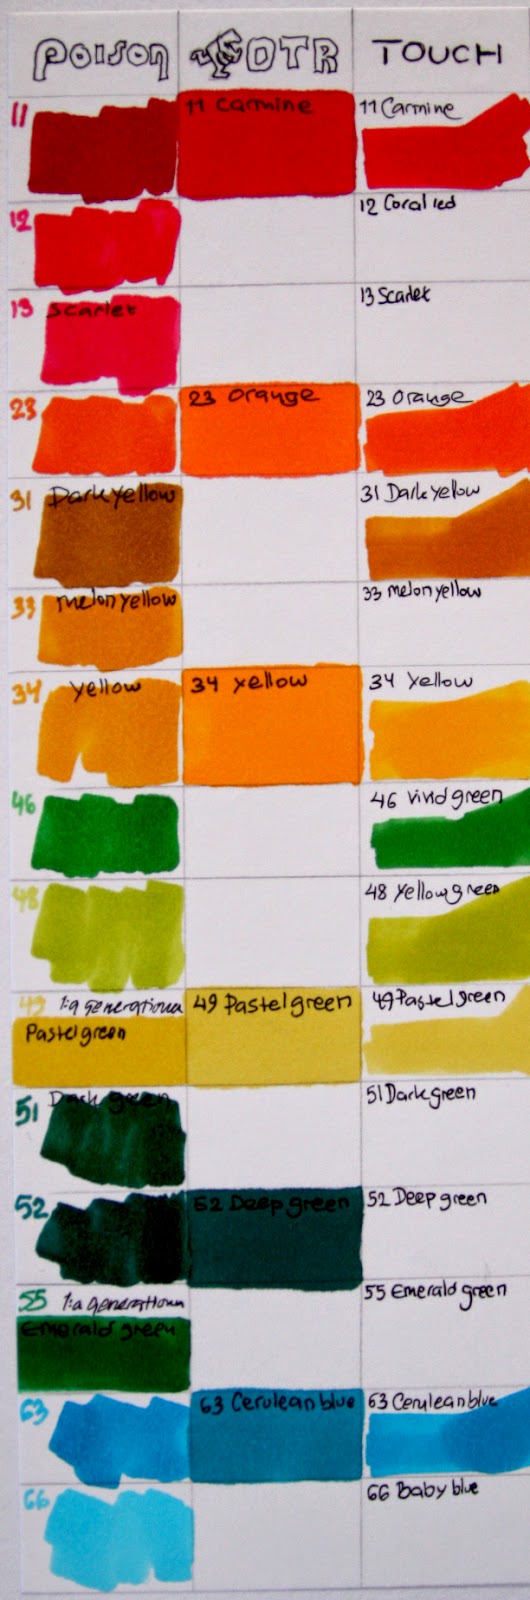 Poison OTR TOUCH
11 11 Carmine 11 Carmine
12 12 Coral red
13 Scarlet 13 Scarlet
23 23 Orange 23 Orange
31 Dark yellow 31 Dark yellow
33 melon yellow 33 melon yellow
34 yellow 34 yellow 34 yellow
46 46 vivid green
48 48 yellow green
49 1:a generationen 49 Pastel green 49 Pastel green
Pastel green
51 Dark green 51 Dark green
52 52 Deep green 52 Deep green
55 1:a generationen 55 Emerald green
Emerald green
63 63 Cerulean blue 63 Cerulean blue
66 66 Baby blue